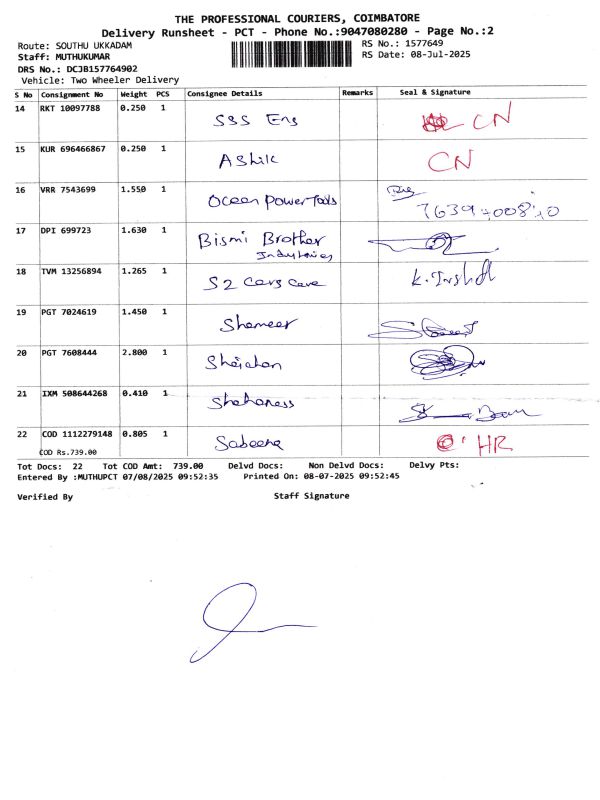 THE PROFESSIONAL COURIERS, COIMBATORE
Delivery Runsheet - PCT - Phone No.:9047080280 - Page No.:2
Route: SOUTHU UKKADAM RS No.: 1577649
Staff: MUTHUKUMAR RS Date: 08-Jul-2025
DRS No.: DCJB157764902
Vehicle: Two Wheeler Delivery
S No Consignment No Weight PCS Consignee Details Remarks Seal & Signature
14 RKT 10097788 0.250 1 SSS Eng CN
15 KUR 696466867 0.250 1 Ashik CN
16 VRR 7543699 1.550 1 Ocean Power Tools
17 DPI 699723 1.630 1 Bismi Brother
Industries
18 TVM 13256894 1.265 1 S2 Cars Care
19 PGT 7024619 1.450 1 Shameer
20 PGT 7608444 2.800 1
21 IXM 508644268 0.410 1
22 COD 1112279148 0.805 1 Sabeena HR
COD Rs.739.00
Tot Docs: 22 Tot COD Amt: 739.00 Delvd Docs: Non Delvd Docs: Delvy Pts:
Entered By :MUTHUPCT 07/08/2025 09:52:35 Printed On: 08-07-2025 09:52:45
Verified By Staff Signature